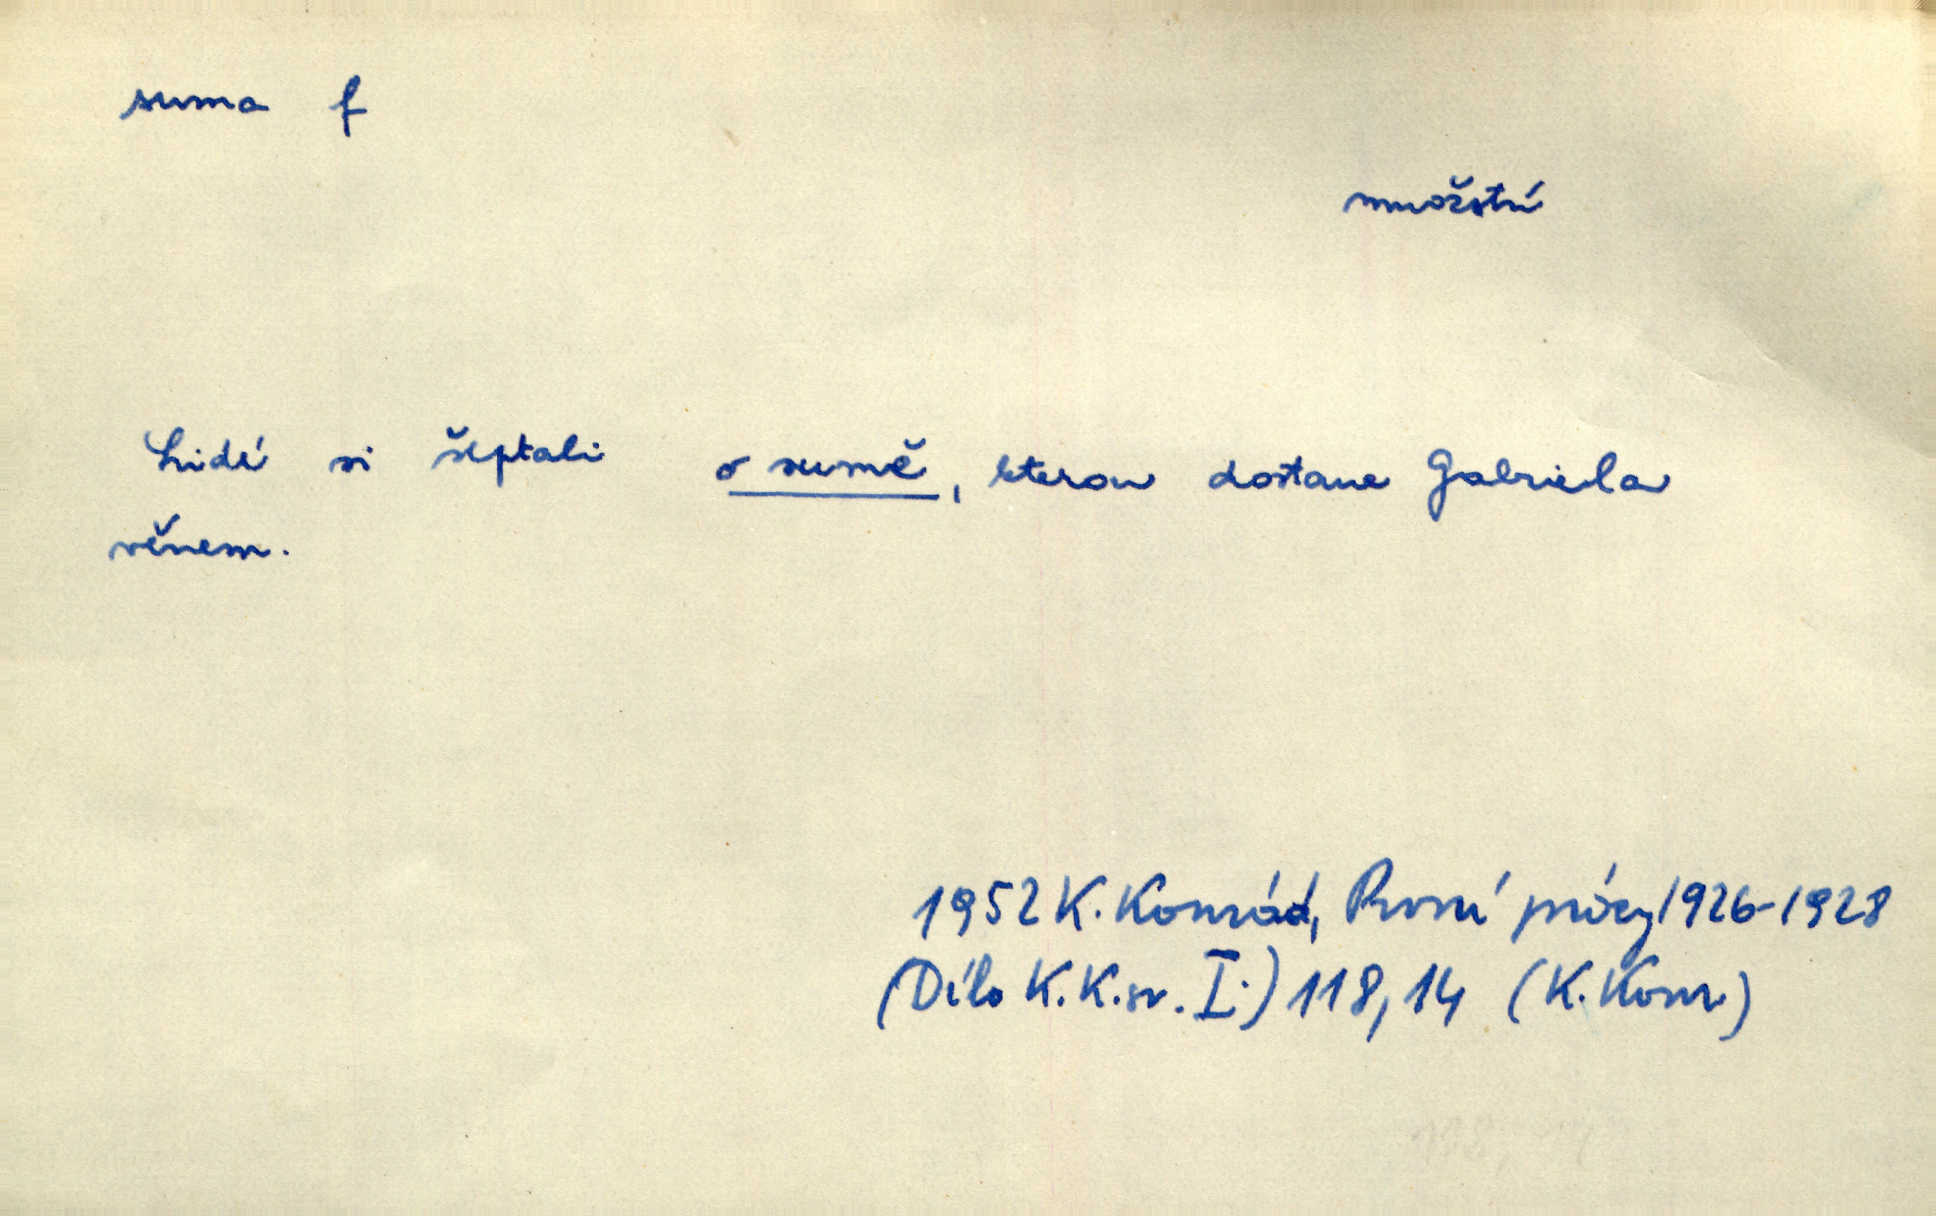 suma f
množství
Lidé si šeptali o sumě, kterou dostane Gabriela
věnem.
1952 K. Konrád, První prózy 1926-1928
(Dílo K. K. sv. I.) 118, 14 (K. Konr.)